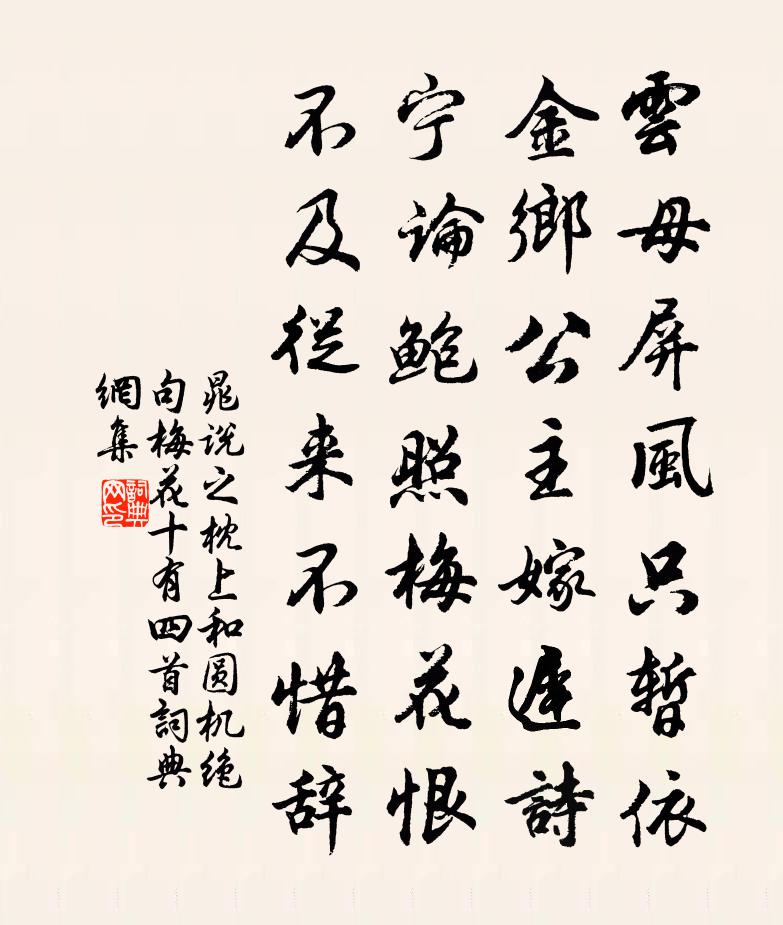 雲母屏風只暫依
金鄉公主嫁遲詩
宁論鮑照梅花恨
不及從来不惜辞
晁说之枕上和圆机绝
句梅花十有四首詞典
網集
詞典
网印